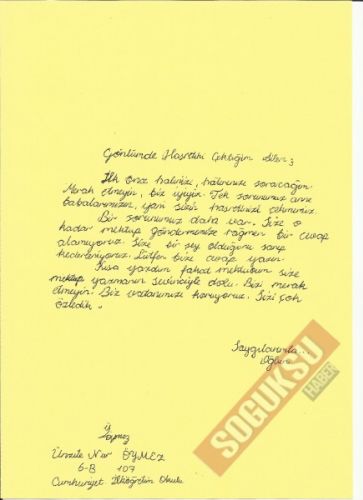 Gönlümde Hasretini Çektiğim Aileme
İlk önce halinizi, hatırınızı soracağım.
Merak etmeyin, biz iyiyiz. Tek sorunumuz anne
babalarımızın, yani sizin hasretinizi çekmemiz.
Bir sorunumuz daha var. Size o
kadar mektup göndermemize rağmen bir cevap
alamıyoruz. Size bir şey olduğunu sanıp
kederleniyoruz. Lütfen bize cevap yazın.
Kısa yazdım fakat mektubum size
mektup yazmanın sevinciyle dolu. Bizi merak
etmeyin. Biz vatanımızı koruyoruz. Sizi çok
özledik.
Saygılarımla..
SOGUKSU
HABER
Ümmü Nur ÖYMEZ
6-B 107
Cumhuriyet İlköğretim Okulu